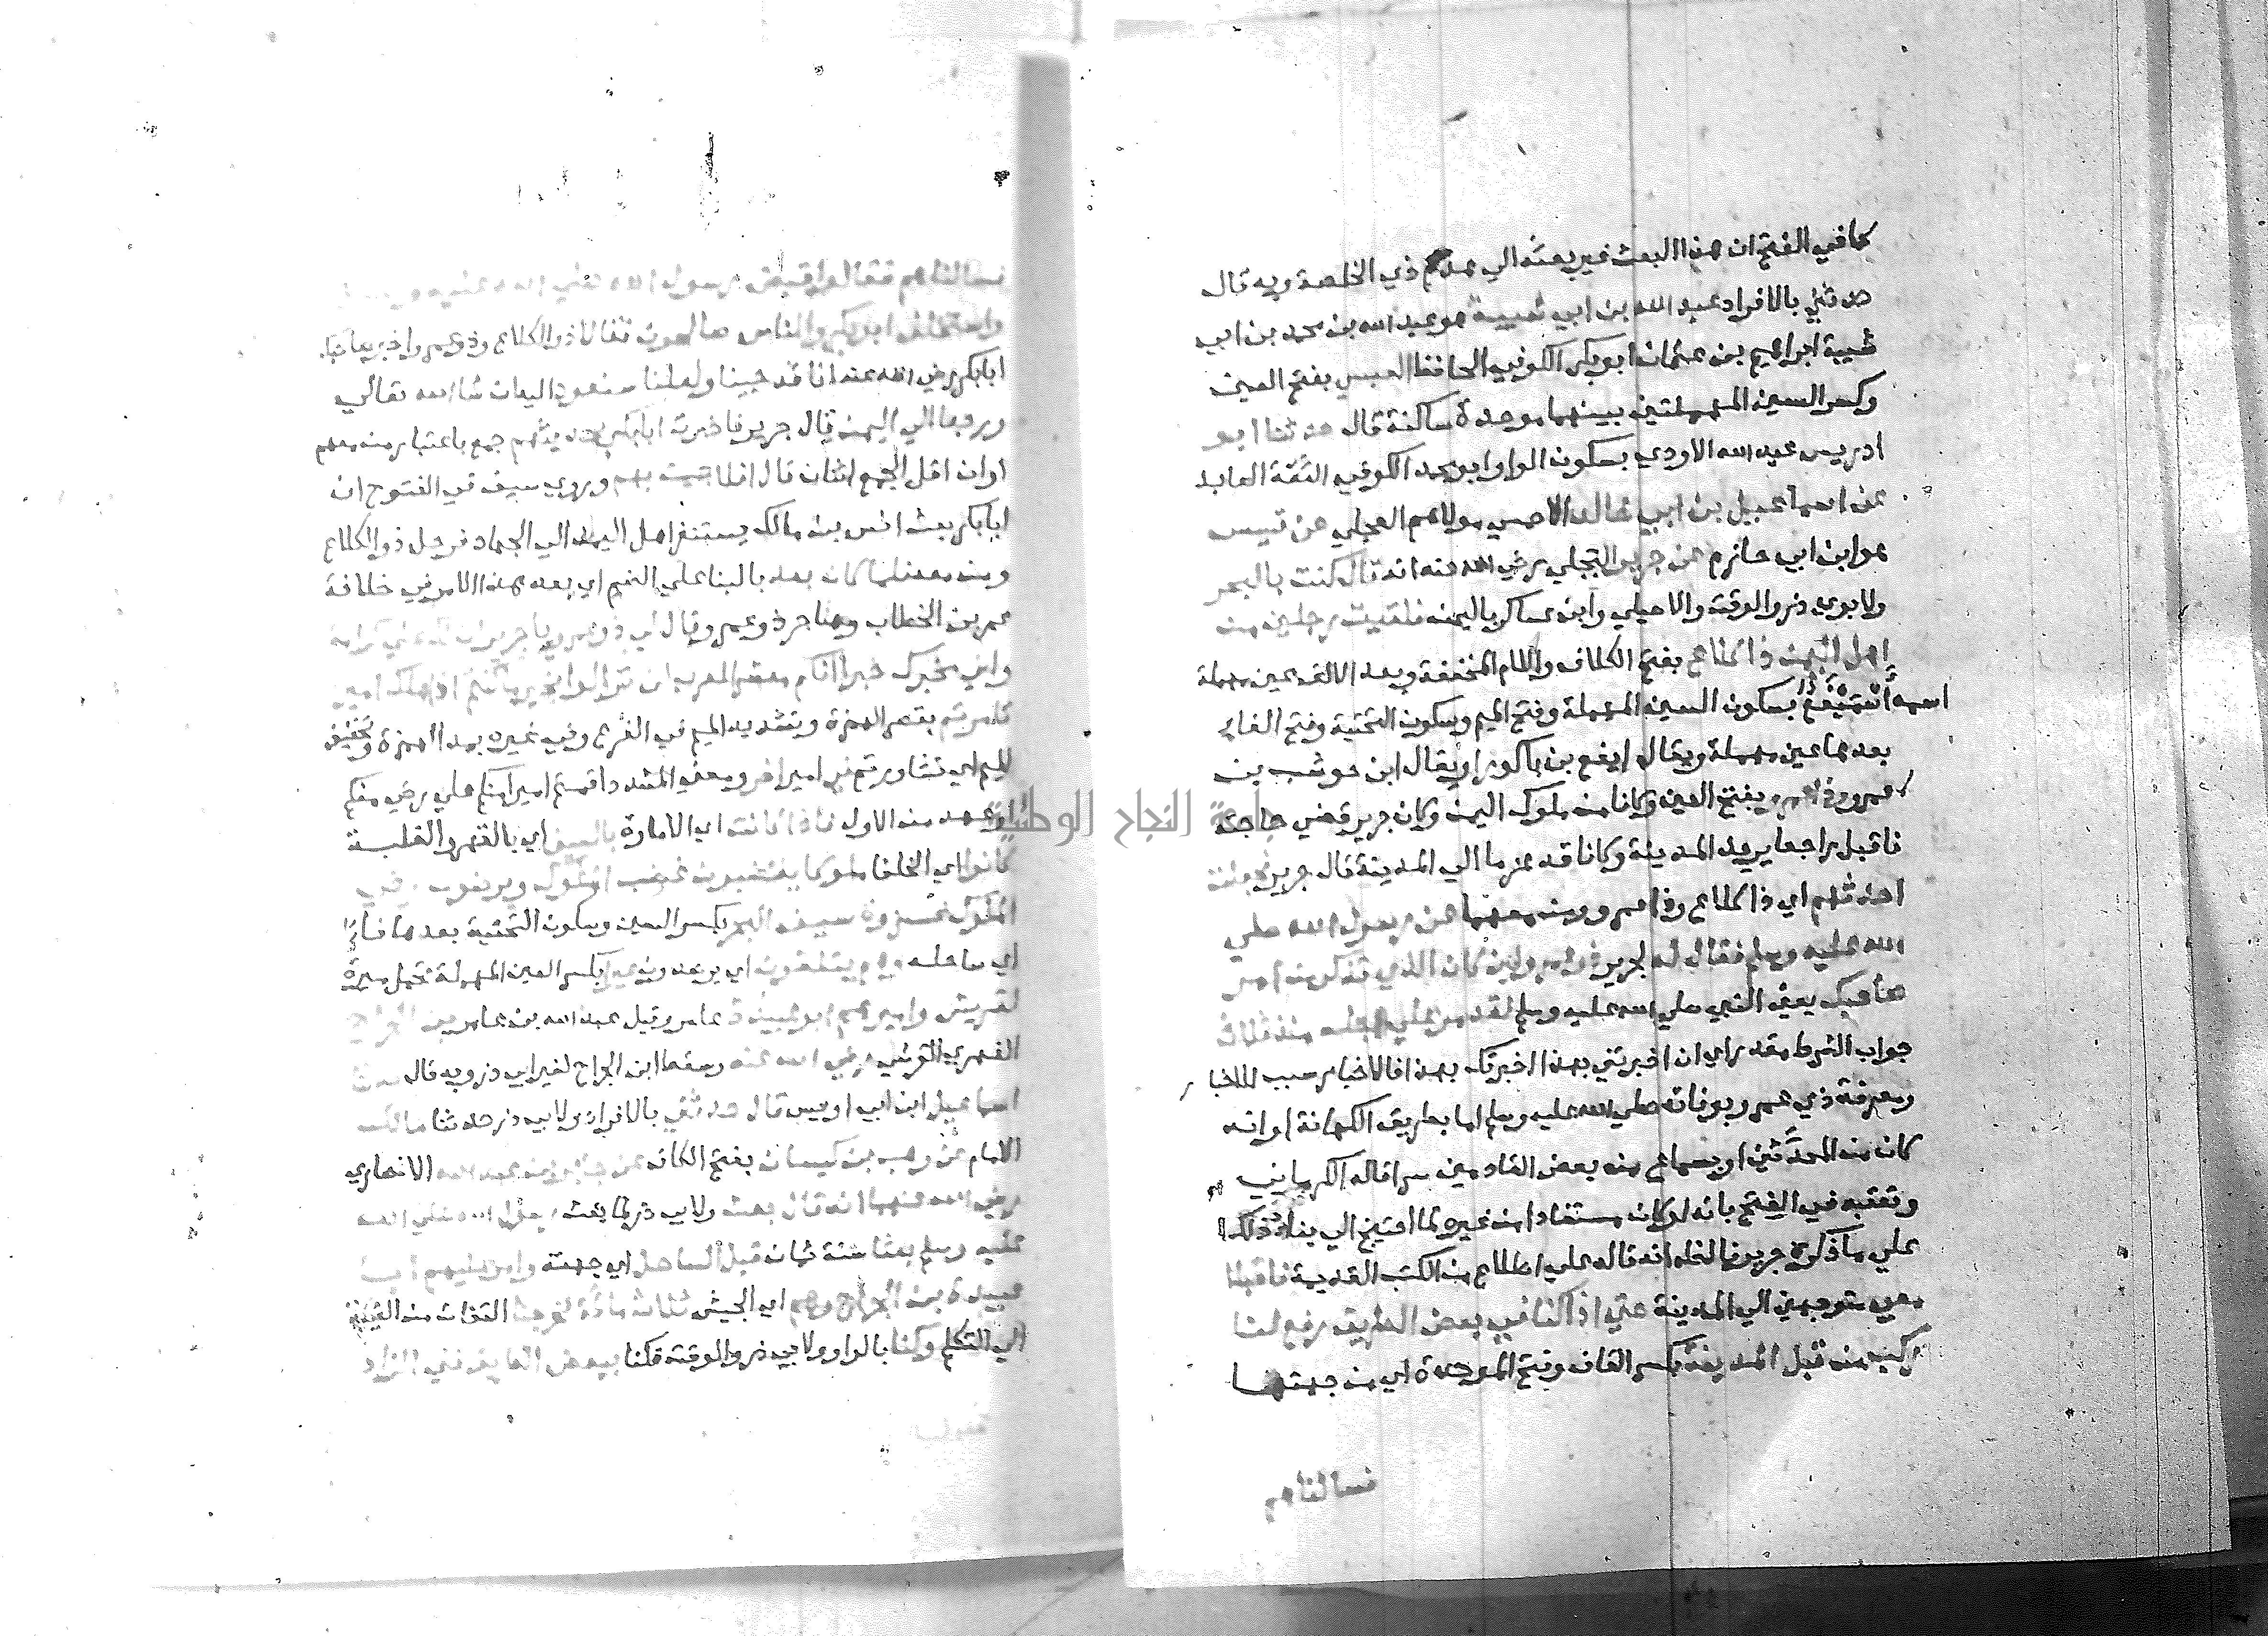 كما في الفتح ان هذا البعث غير بعثه الي هدم ذي الخلصة وبه قال
حدثني بالافراد عبد الله بن ابي شيبة هو عبد الله بن محمد بن ابي
شيبة ابراهيم بن عثمان ابو بكر الكوفي الحافظ العبسي بفتح العين
وكسر السين المهملتين بينهما موحدة ساكنة قال حدثنا ابو
ادريس عبد الله الاودي بسكون الواو ابو محمد الكوفي الثقة العابد
عن اسماعيل بن ابي خالد الاحمسي مولاهم العجلي عن قيس
هو ابن ابي حازم عن جرير البجلي رضي الله عنه انه قال كنت بالبحر
ولابوي ذر والوقت والاصيلي وابن عساكر باليمن فلقيت رجلين من
اهل اليمن ذا كلاع بفتح الكاف واللام المخففة وبعد الالف عين مهملة
اسمه اسميفع بسكون السين المهملة وفتح الميم وسكون التحتية وفتح الفاء
بعدها عين مهملة ويقال ايفع بن باكورا ويقال ابن حوشب بن
عمرو وذا عمرو بفتح العين وكانا من ملوك اليمن وكان جرير قضي حاجته
فاقبل راجعا يريد المدينة وكانا قد عزما الي المدينة قال جرير فجعلت
احدثهم اي ذا كلاع وذا عمرو ومن معهما عن رسول الله صلي
الله عليه وسلم فقال له لجرير ذو عمرو لئن كان الذي تذكر من امر
صاحبك يعني النبي صلي الله عليه وسلم لقد مر علي اجله منذ ثلاث
جواب الشرط مقدر اي ان اخبرتني بهذا اخبرتك بهذا فالاخبار سبب للاخبار
ومعرفة ذي عمرو بوفاته صلي الله عليه وسلم اما بطريق الكهانة او انه
كان من المحدَّثين او بسماع من بعض القادمين سرا قاله الكرماني
وتعقبه في الفتح بانه لو كان مستفادا من غيره لما احتيج الي بناء ذلك
علي ما ذكره جرير فالظاهر انه قاله علي اطلاع من الكتب القديمة فاقبلا
معي متوجهين الي المدينة حتي اذا كنا في بعض الطريق رفع لنا
ركب من قبل المدينة بكسر القاف وفتح الموحدة اي من جهتها
فسالناهم
فسالناهم فقالوا قبض رسول الله صلي الله عليه وسلم
واستخلف ابو بكر والناس صالحون فقالا ذو الكلاع وذو عمرو اخبر صاحبك
ابا بكر رضي الله عنه انا قد جينا ولعلنا سنعود اليه ان شا الله تعالي
ورجعا الي اليمن قال جرير فاخبرت ابا بكر بحديثهم جمع باعتبار من معهم
او ان اقل الجمع اثنان قال افلا جيت بهم وروي سيف في الفتوح ان
ابا بكر بعث انس بن مالك يستنفر اهل اليمن الي الجهاد فرحل ذو الكلاع
ومن معه فلما كان بعد بالبنا علي الضم اي بعد هذا الامر في خلافة
عمر بن الخطاب وهاجر ذو عمرو قال لي ذو عمرو يا جرير ان لك علي كرامة
واني مخبرك خبرا انكم معشر العرب لن تزالوا بخير ما كنتم اذا هلك امير
تامرتم بقصر الهمزة وتشديد الميم في الفرع وفي غيره بمد الهمزة وتخفيف
الميم اي تشاورتم في امير اخر ومعني المشدد اقمتم اميرا منكم علي رضي منكم
او عهد من الاول فاذا كانت اي الامارة بالسيف اي بالقهر والغلبة
كانوا اي الخلفا ملوكا يغضبون غضب الملوك ويرضون رضي
الملوك غزوة سيف البحر بكسر السين وسكون التحتية بعدها فاء
اي ساحله وهم يتلقون اي يرصدون عيرا بكسر العين المهملة تحمل ميرة
لقريش واميرهم ابو عبيدة عامر وقيل عبد الله بن عامر بن الجراح
الفهري القرشي رضي الله عنه وسقط ابن الجراح لغير ابي ذر وبه قال حدثنا
اسماعيل ابن ابي اويس قال حدثني بالافراد ولابي ذر حدثنا مالك
الامام عن وهب بن كيسان بفتح الكاف عن جابر بن عبد الله الانصاري
رضي الله عنهما انه قال بعث ولابي ذر لما بعث رسول الله صلي الله
عليه وسلم بعثا سنة ثمان قبل الساحل اي جهته وامر عليهم ابا
عبيدة بن الجراح وهم اي الجيش ثلاث مائة فخرجنا التفات من الغيبة
الي التكلم وكنا بالواو ولابي ذر والوقت فكنا ببعض الطريق فني الزاد
جامعة النجاح الوطنية